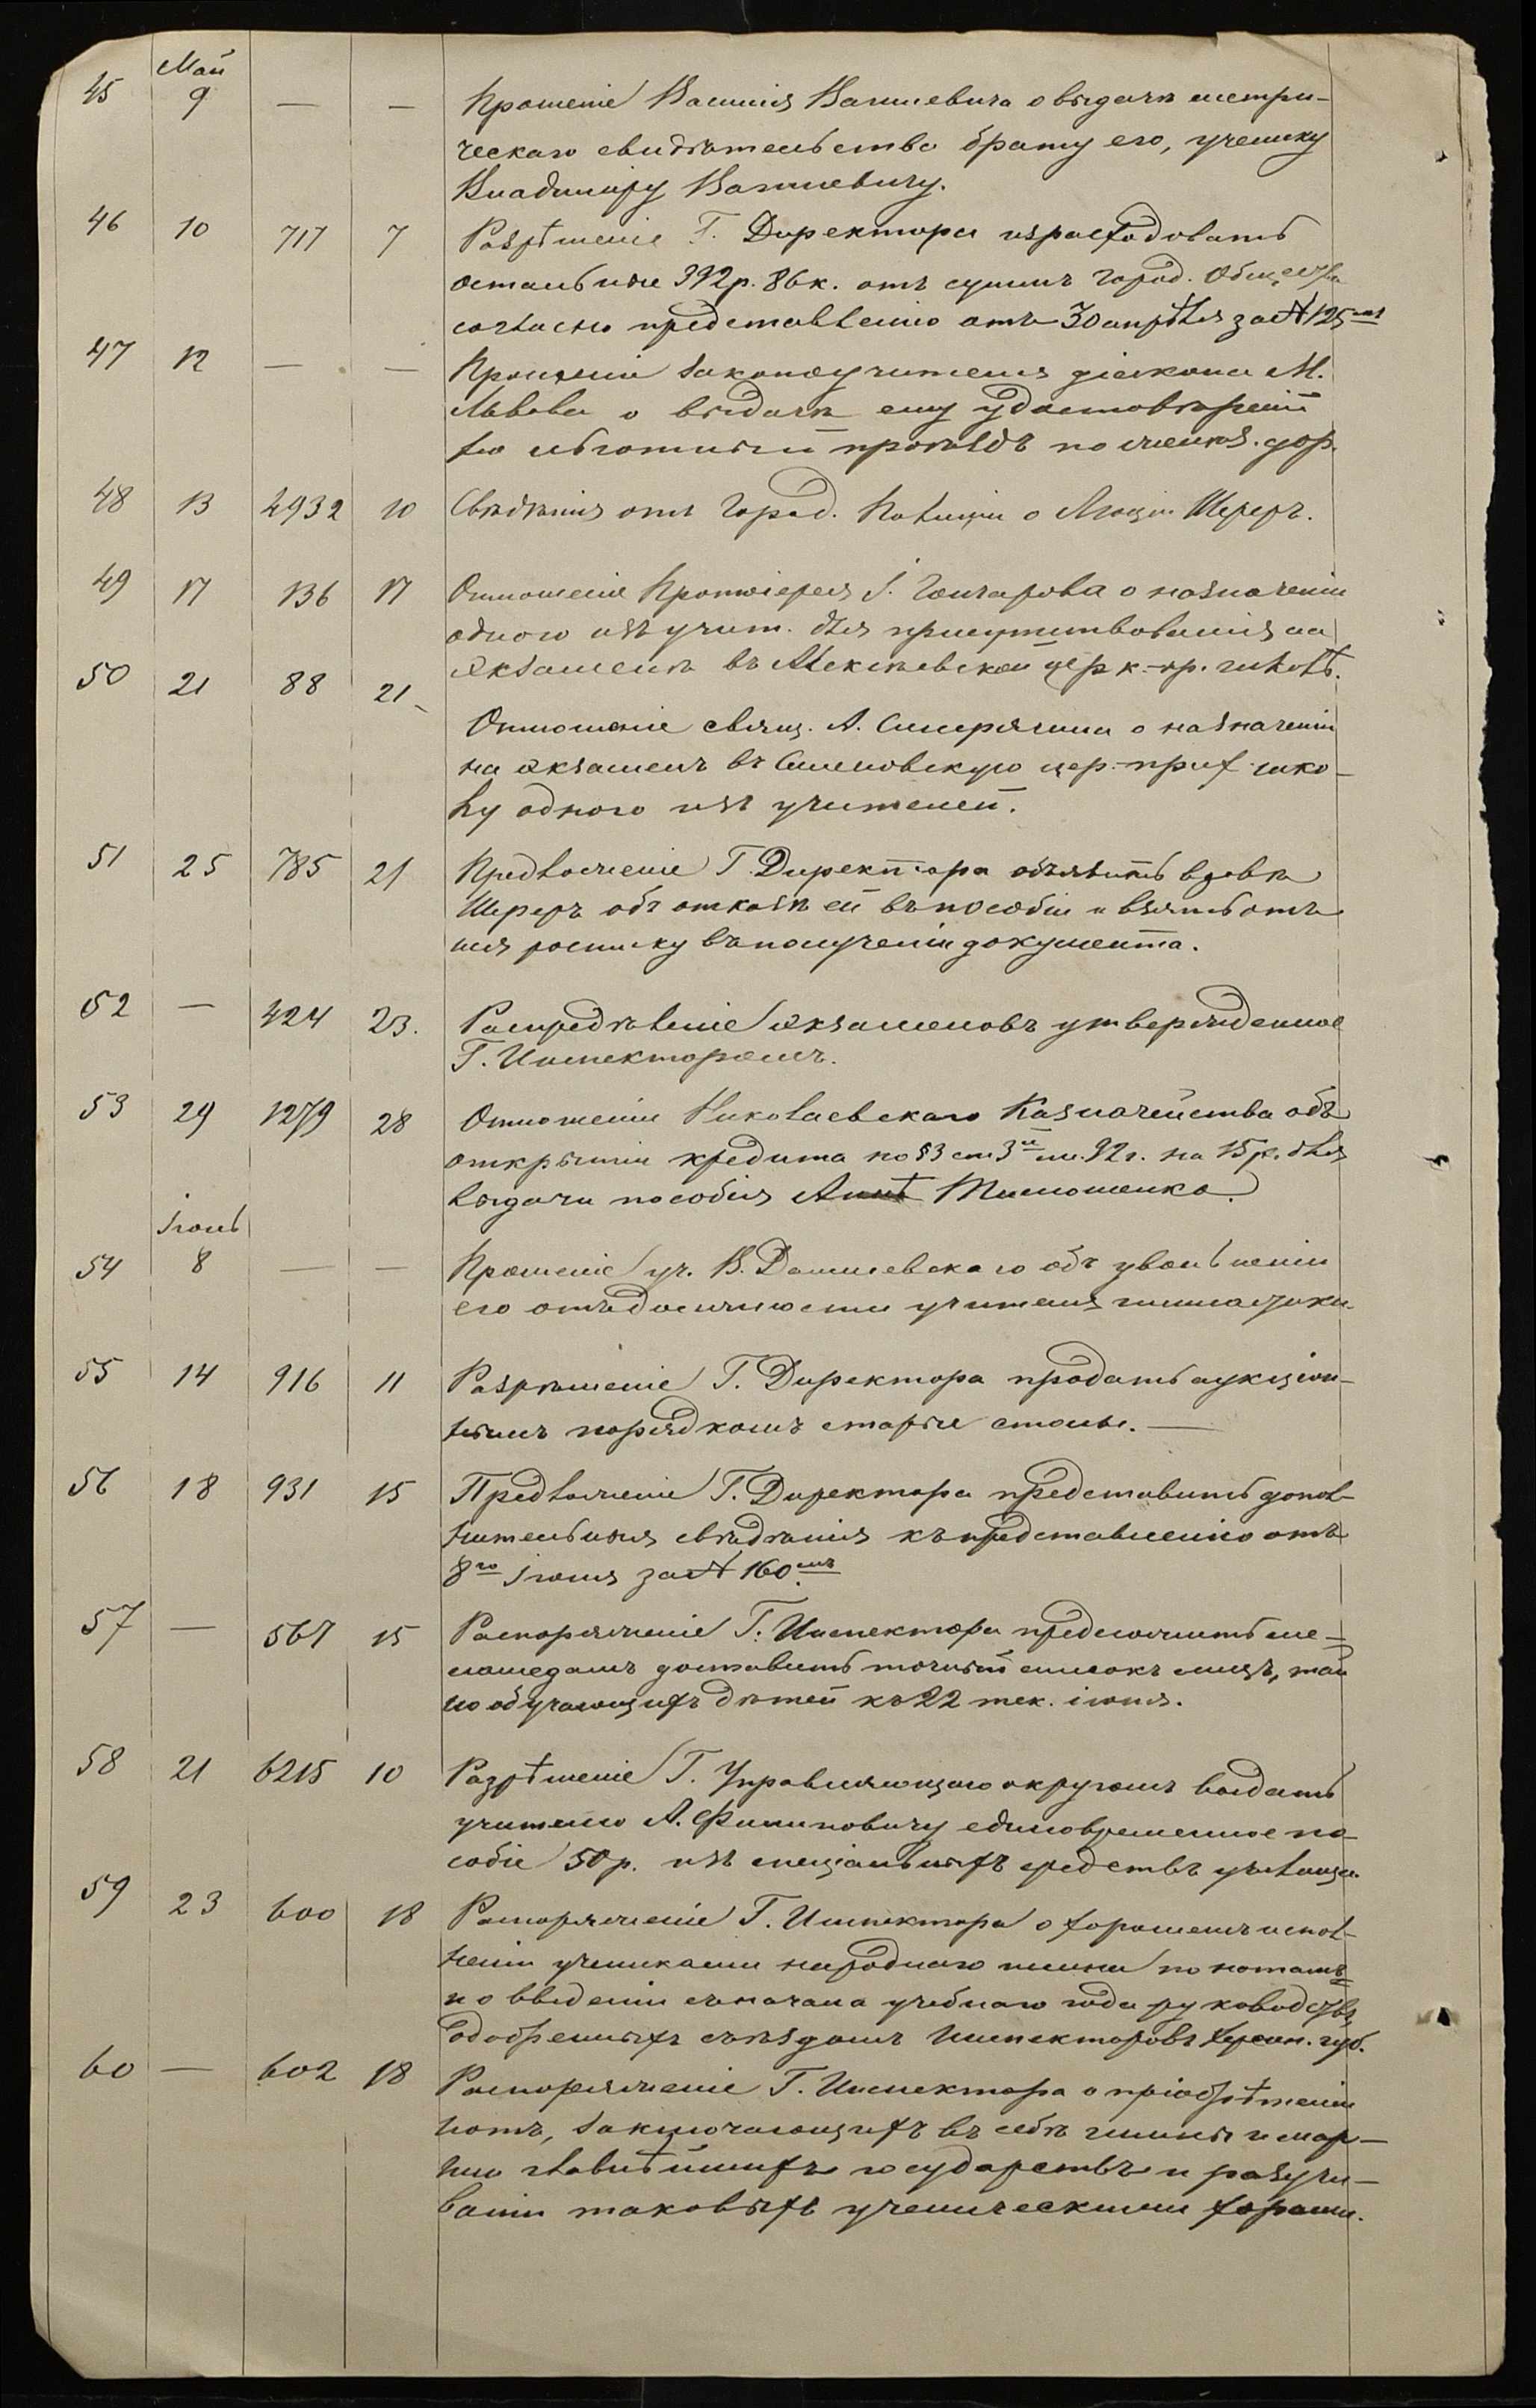 Май
45 9 — — Прошеніе Василія Вашкевича о выдачѣ метри-
ческаго свидѣтельства брату его, ученику
Владиміру Вашкевичу.
46 10 717 7 Разрѣшеніе Г. Директора израсходовать
остальные 392 р. 86 к. отъ суммъ город. Общества
согласно представленію отъ 30 апрѣля за № 125мъ
47 12 — — Прошеніе законоучителя діакона М.
Львова о выдачѣ ему удостовѣренія
на льготный проѣздъ по желѣз. дор.
48 13 4932 10 Свѣдѣнія отъ Город. Полиціи о Шереръ.
49 17 136 17 Отношеніе Протоіерея І. Гончарова о назначеніи
одного изъ учит. для присутствованія на
экзаменѣ въ Алексѣевской церк.-пр. школѣ.
50 21 88 21
Отношеніе свящ. А. о назначеніи
на экзаменъ въ Симеоновскую цер.-прих. шко-
лу одного изъ учителей.
51 25 785 21 Предложеніе Г. Директора объявить вдовѣ
Шереръ объ отказѣ ей въ пособіи и взять отъ
нея росписку въ полученіи документа.
52 — 424 23. Распредѣленіе экзаменовъ утвержденное
Г. Инспекторомъ.
53 29 1279 28 Отношеніе Николаевскаго Казначейства объ
открытіи кредита по § 3 ст. 3й 92 г. на 15 р. для
выдачи пособія Аннѣ Тимошенко.
Іюнь
54 8 — — Прошеніе уч. В. Данилевскаго объ увольненіи
его отъ должности учителя гимнастики
55 14 916 11 Разрѣшеніе Г. Директора продать аукціон-
нымъ порядкомъ старые столы. —
56 18 931 15 Предложеніе Г. Директора представить допол-
нительныя свѣдѣнія къ представленію отъ
8го Іюня за № 160мъ
57 — 567 15 Распоряженіе Г. Инспектора предложить ме-
ламедамъ доставить точный списокъ лицъ, тай
но обучающихъ дѣтей къ 22 тек. іюня.
58 21 6215 10 Разрѣшеніе Г. Управляющаго округомъ выдать
учителю А. Филиповичу единовременное по-
собіе 50 р. изъ спеціальныхъ средствъ училища
59 23 600 18 Распоряженіе Г. Инспектора о хорошемъ испол-
неніи учениками народнаго гимна по нотамъ
и о введеніи съ начала учебнаго года руководствъ
одобренныхъ съѣздомъ Инспекторовъ Херсон. губ.
60 — 602 18 Распоряженіе Г. Инспектора о пріобрѣтеніи
нотъ, заключающихъ въ себѣ гимны и мар-
ши главнѣйшихъ государствъ и разучи-
ваніи таковыхъ ученическими хорами.